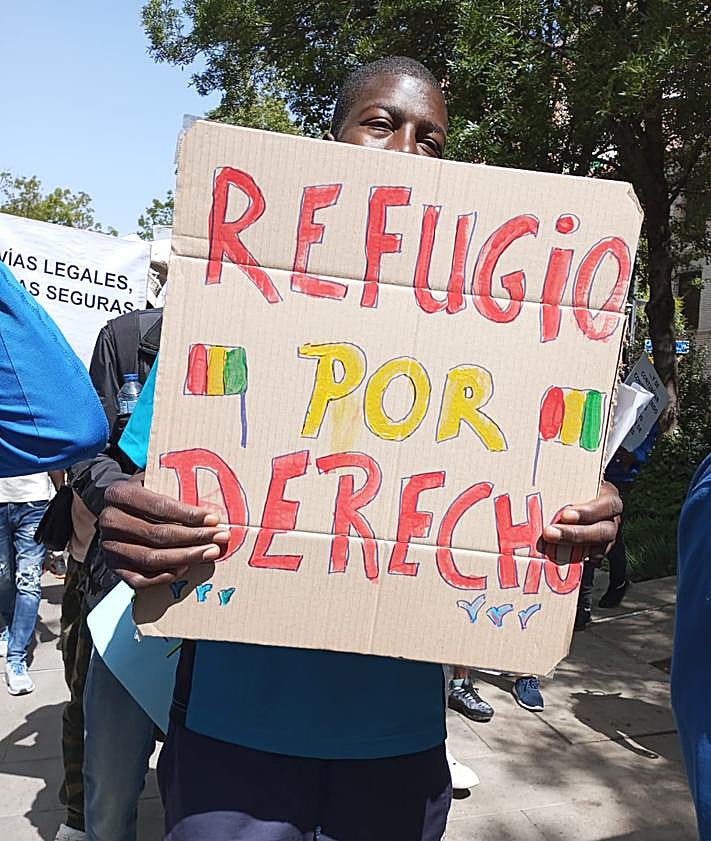 REFUGIO
POR
DERECHO
VÍAS LEGALES,
AS SEGURAS